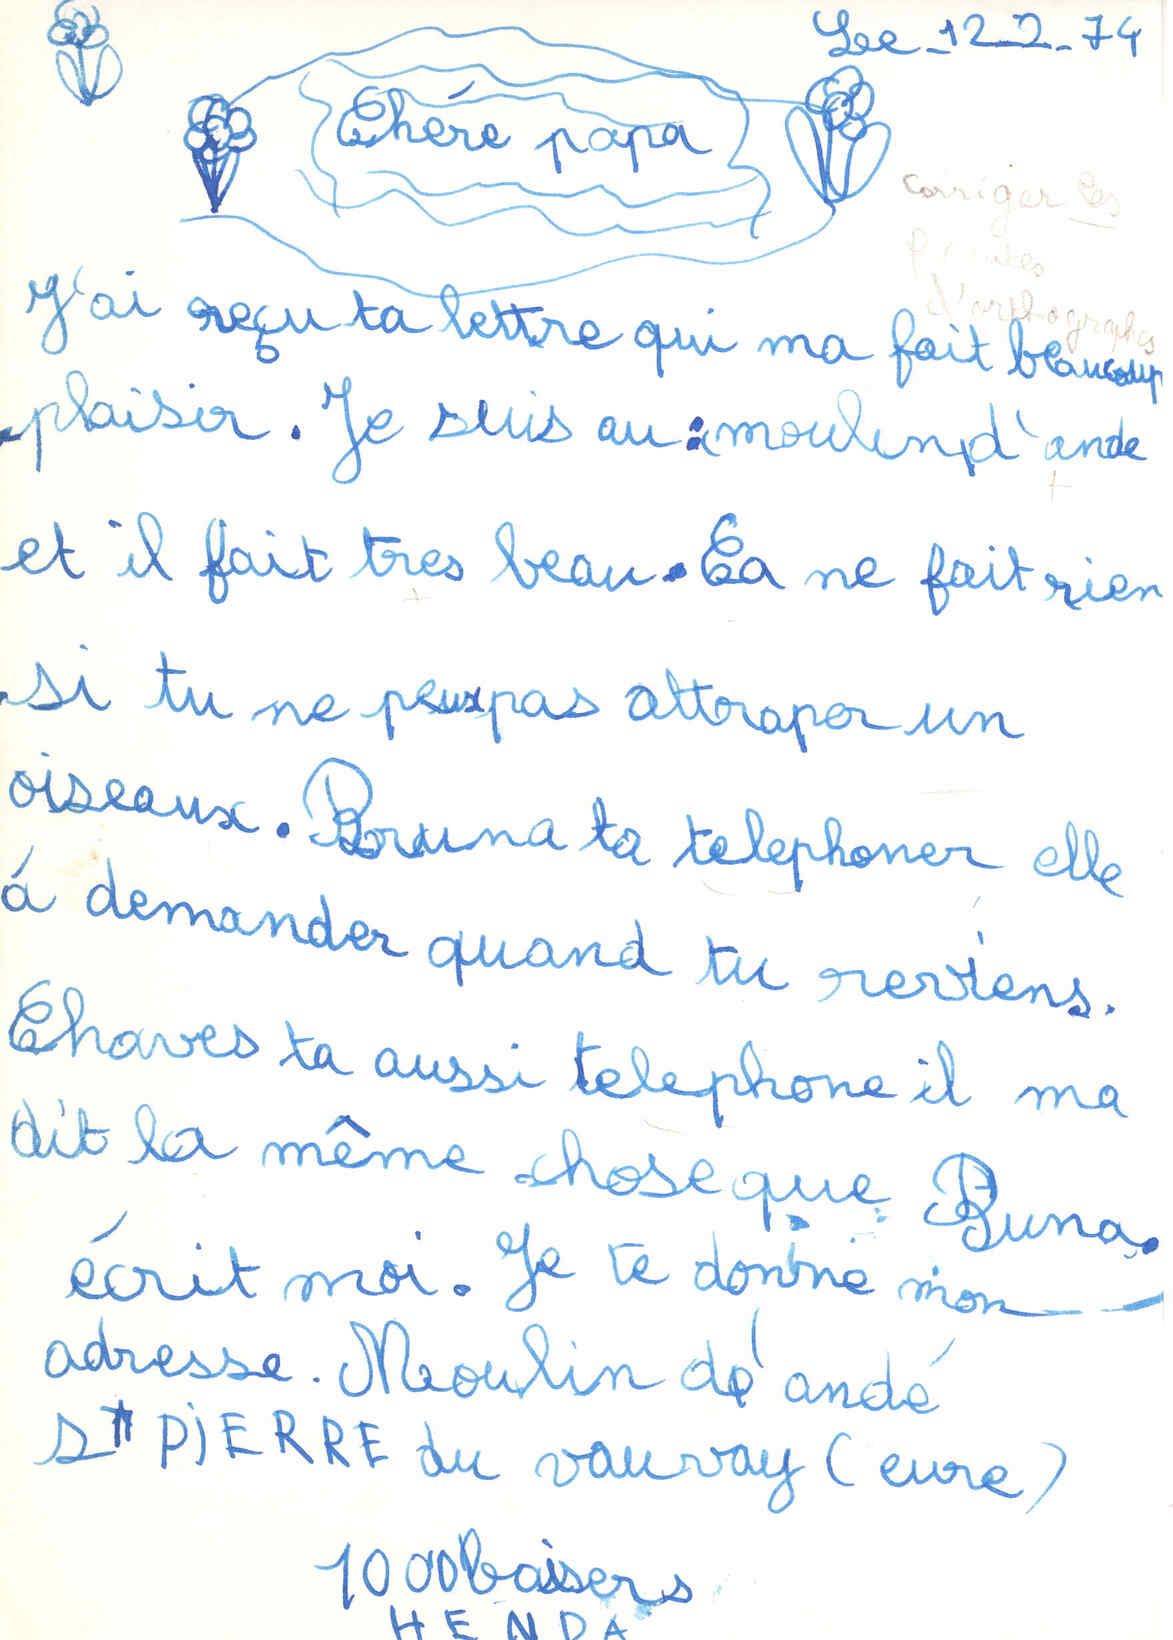 Lee - 12-2-74
Chére papa
corriger les
fautes
d'orthographes
J'ai reçu ta lettre qui ma fait beaucoup
plaisir. Je suis au moulin d'ande
et il fait tres beau. Ca ne fait rien
si tu ne peux pas attraper un
oiseaux. Bruna ta telephoner elle
á demander quand tu reviens.
Chaves ta aussi telephone il ma
dit la même chose que Buna.
écrit moi. Je te donne mon
adresse. Moulin de' andé
St PiERRE du vauvay (eure)
1000 baisers
HENDA